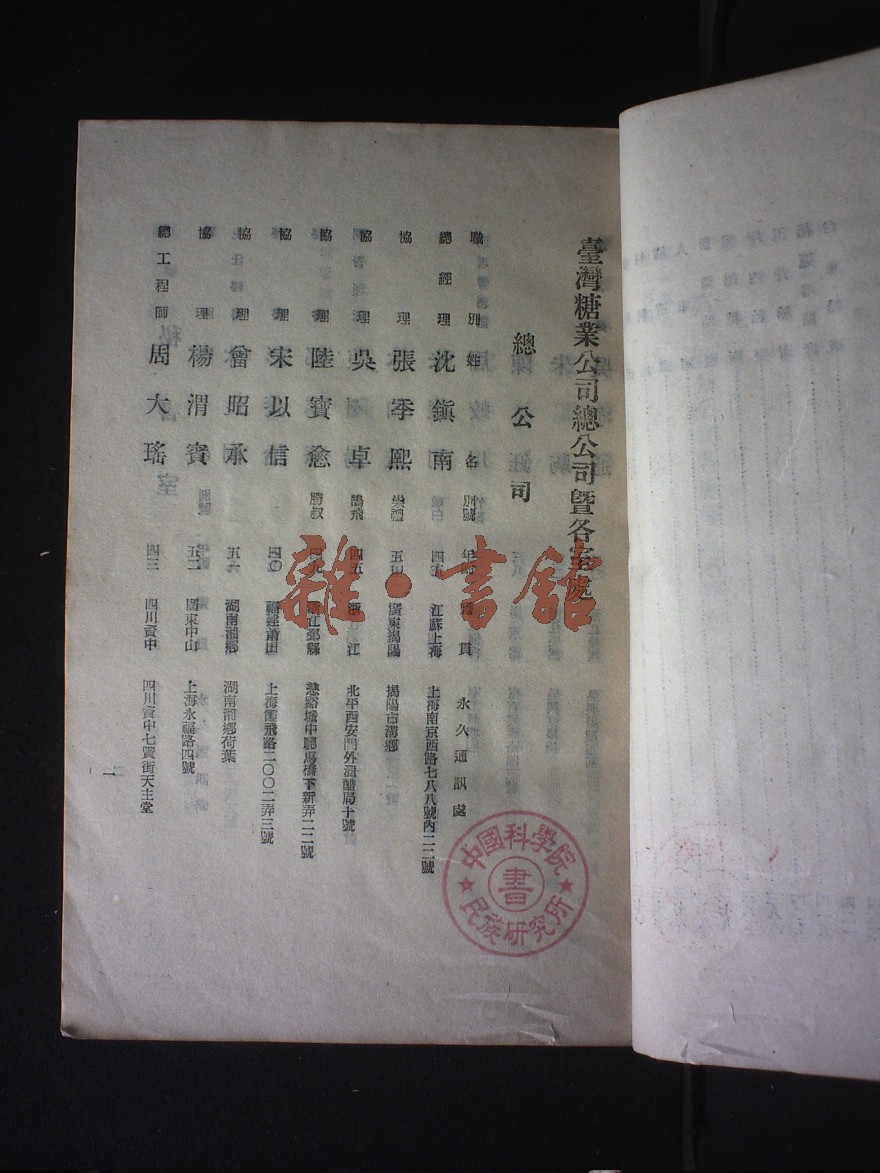 臺灣糖業公司總公司暨各室處
總公司
職別 姓名 別號 年齡 籍貫 永久通訊處
總經理 沈鎮南 四五 江蘇上海 上海南京西路七八八號內二二號
協理 張季熙 五 廣東揭陽 揭陽古溝鄉
協理 吳卓 鵠飛 四五 浙江 北平西安門外酒醋局十號
協理 陸寶愈 四九 浙江鄞縣 慈谿城中驄馬橋下新弄二二號
協理 宋以信 四〇 福建莆田 上海霞飛路二〇〇二弄三號
協理 曾昭承 五 湖南湘鄉 湖南湘鄉荷葉
協理 楊渭賓 五二 廣東中山 上海永福路四號
總工程師 周大瑤 四三 四川資中 四川資中七賢街天主堂
一
中國科學院
書
民族研究所
雜·書館